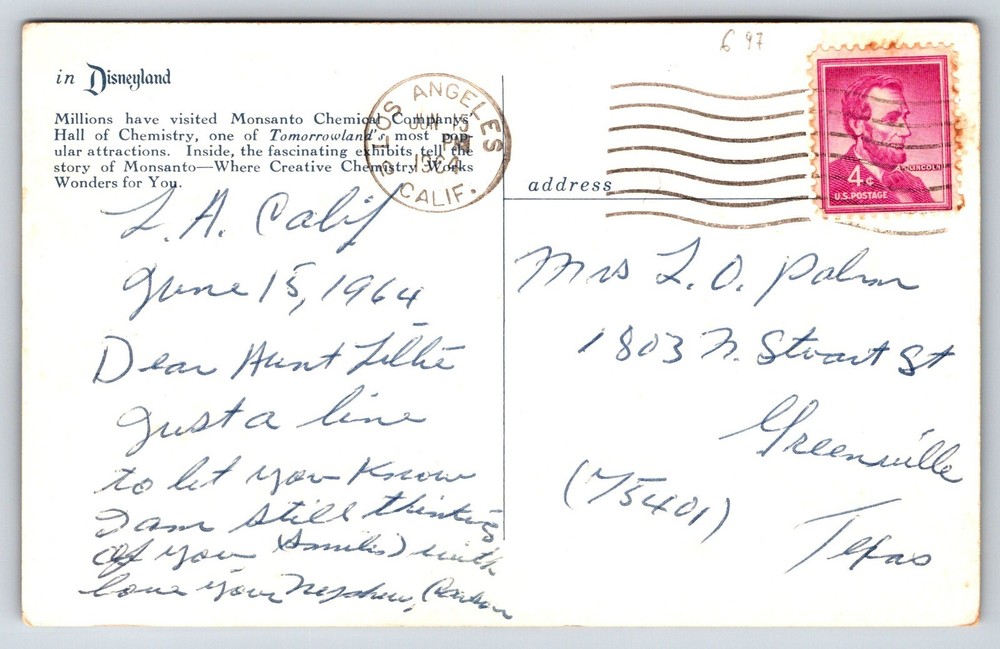 6 97
in Disneyland
Millions have visited Monsanto Chemical Companys'
Hall of Chemistry, one of Tomorrowland's most pop-
ular attractions. Inside, the fascinating exhibits tell the
story of Monsanto—Where Creative Chemistry Works
Wonders for You.
LOS ANGELES
CALIF.
JUN 15
PM
1964
4¢
LINCOLN
U.S. POSTAGE
address
L. A. Calif
June 15, 1964
Dear Aunt Lillie
Just a line
to let you Know
I am still thinking
of you (smiles) with
love your Nephew,
Mrs L. O.
1803 N. Stuart St
Greenville
(75401)
Texas